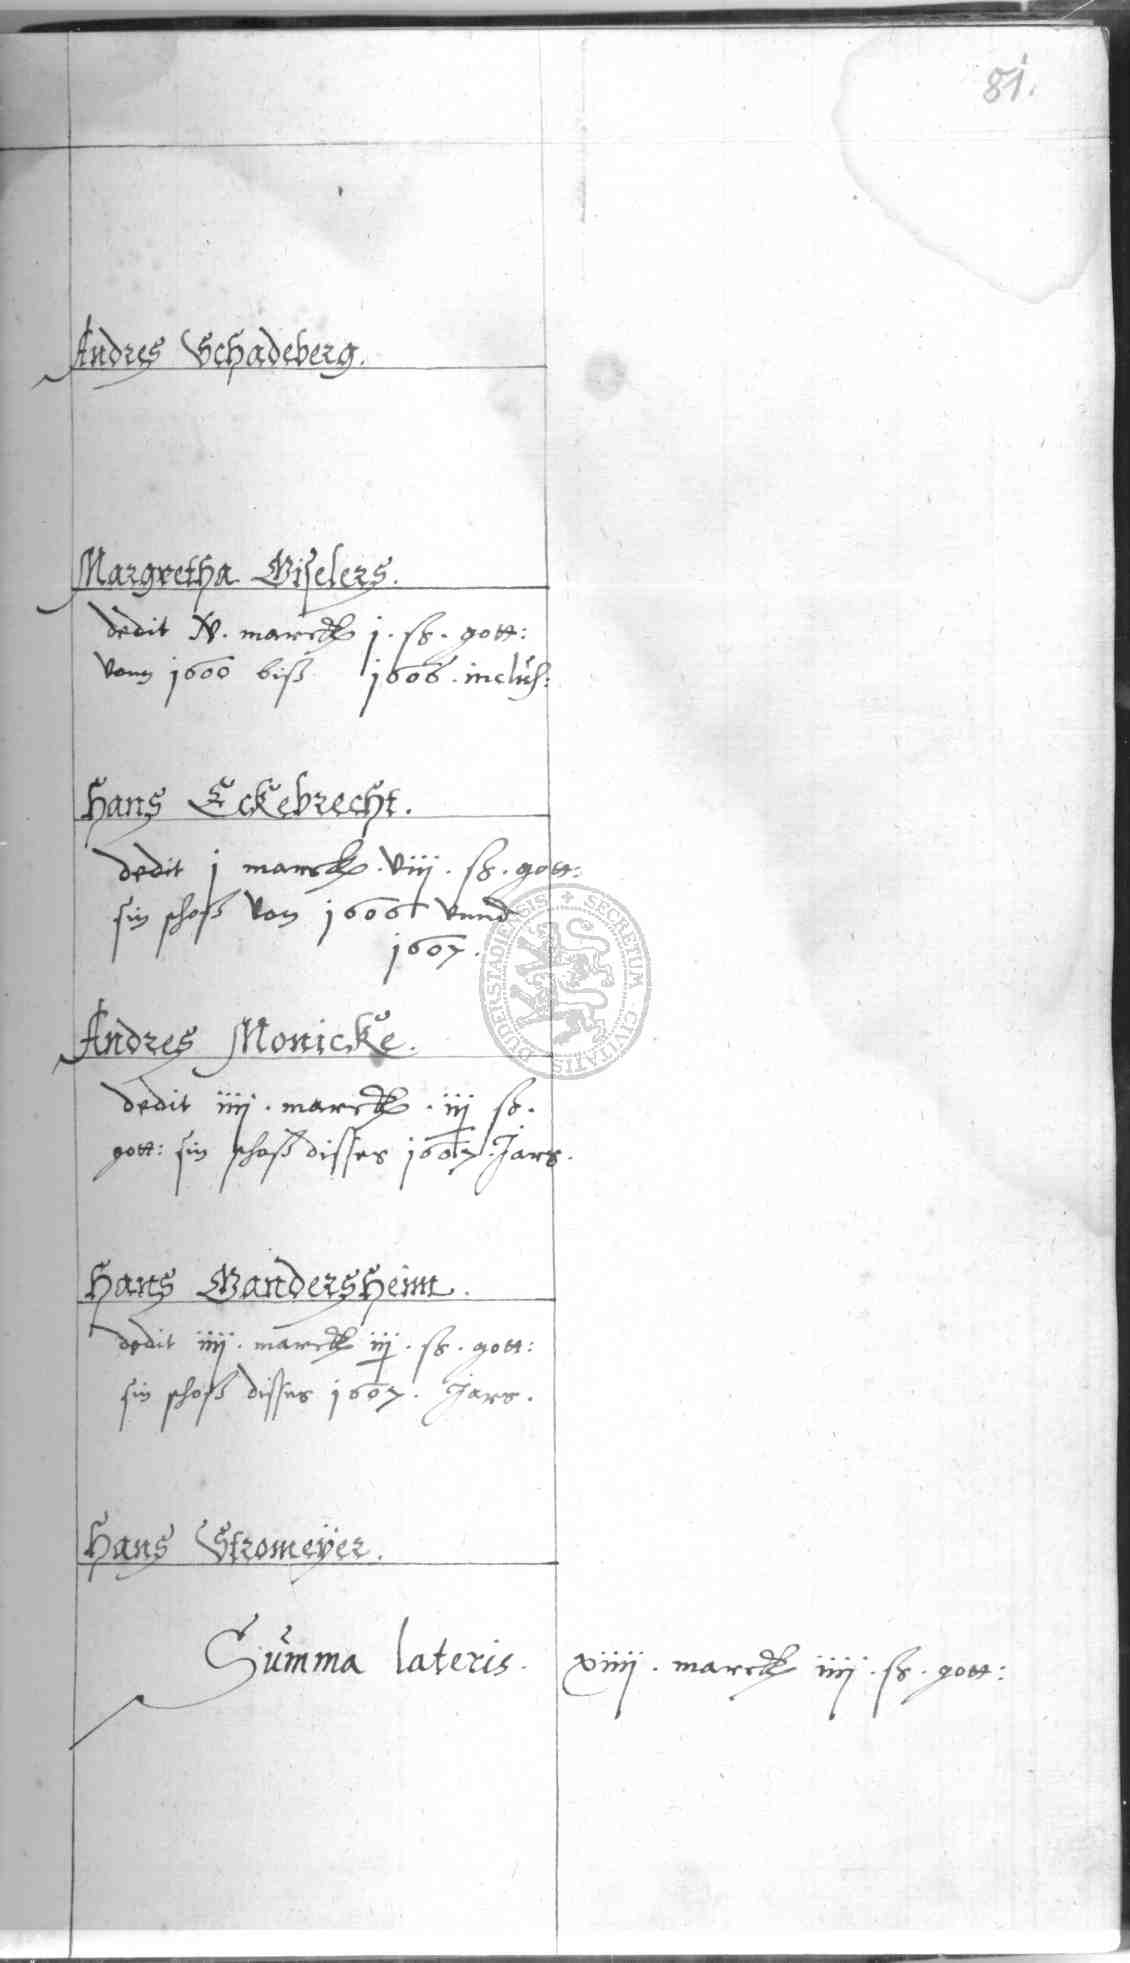 81.
Andres Schadeberg.
Margretha Giselers.
dedit v. marck j. ß. gott:
vonn 1600 biß 1606. inclus:
Hans Eckebrecht.
dedit j marck. viij. ß. gott:
sin schoß von 1606 vnnd
1607.
Andres Monicke.
dedit iiij. marck. iij ß.
gott: sin schoß disses 1607. Jars.
Hans Gandersheim.
dedit iiij. marck iij. ß. gott:
sin schoß disses 1607. Jars.
Hans Stromeÿer.
Summa lateris. xiiij. marck iiij. ß. gott:
SECRETUM CIVITATIS DUDERSTADIENSIS